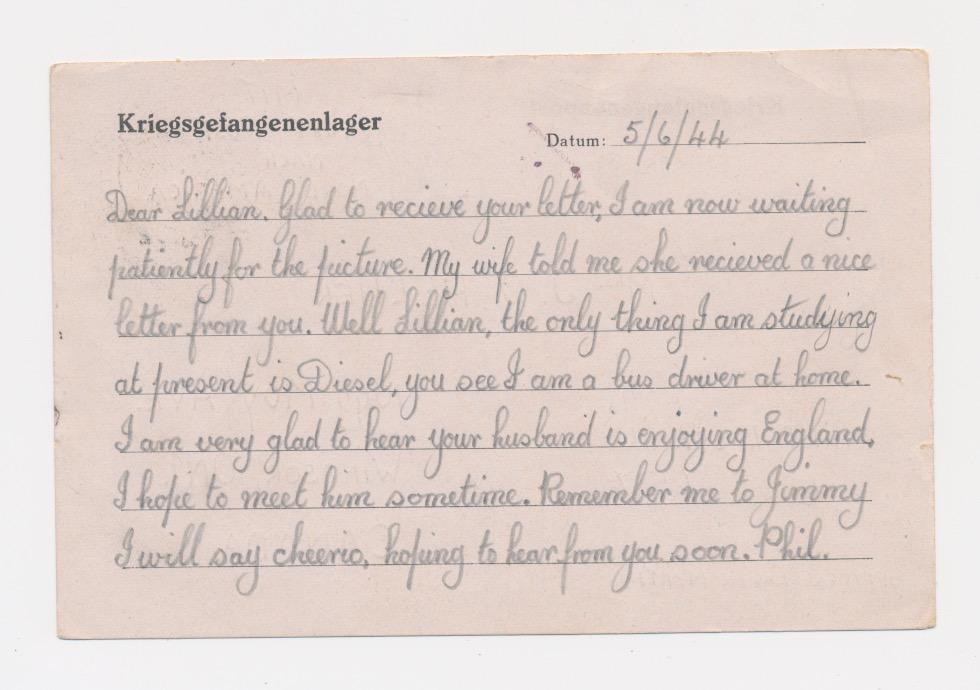 Kriegsgefangenenlager
Datum: 5/6/44
Dear Lillian. Glad to recieve your letter, I am now waiting
patiently for the picture. My wife told me she recieved a nice
letter from you. Well Lillian, the only thing I am studying
at present is Diesel, you see I am a bus driver at home.
I am very glad to hear your husband is enjoying England,
I hope to meet him sometime. Remember me to Jimmy
I will say cheerio, hoping to hear from you soon. Phil.